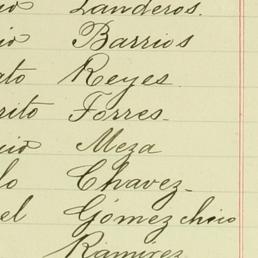 io Landeros.
io Barrios
ato Reyes.
rito Torres.
cio Meza
lo Chavez.
el Gómez chico
Ramirez